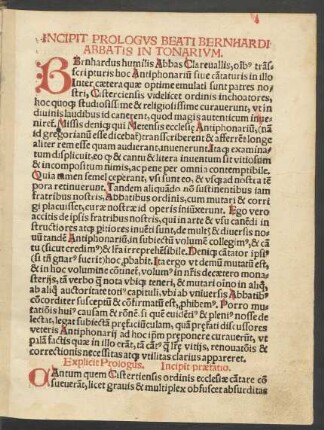 INCIPIT PROLOGVS BEATI BERNHARDI
ABBATIS IN TONARIVM.
BErnhardus humilis Abbas Clareuallis, oĩbꝰ trãs
scripturis hoc Antiphonariũ siue cãtaturis in illo
Inter cætera quæ optime emulati sunt patres no-
stri, Cisterciensis videlicet ordinis inchoatores,
hoc quoqʒ studiosissime & religiosissime curauerunt, vt in
diuinis laudibus id canerent, quod magis autenticum inue-
niret̃. Missis deniqʒ qui Metensis ecclesię Antiphonariũ, (nã
id gregorianũ esse dicebat̃) transcriberent & afferrẽt longe
aliter rem esse quam audierant, inuenerunt. Itaqʒ examina/
tum displicuit, eo qʒ & cantu & litera inuentum sit vitiosum
& incompositum nimis, ac pene per omnia contemptibile.
Quia tamen semel ceperant, vsi sunt eo, & vsqʒ ad nostra tẽ
pora retinuerunt. Tandem aliquãdo nõ sustinentibus iam
fratribus nostris, Abbatibus ordinis, cum mutari & corri
gi placuisset, curæ nostræ id operis iniũxerunt. Ego vero
accitis de ipsis fratribus nostris, qui in arte & vsu canẽdi in
structiores atqʒ pitiores inuẽti sunt, de multꝭ & diuersis no-
uũ tandẽ Antiphonariũ, in subiectũ volumẽ collegimꝰ, & cã
tu (sicut credimꝰ) & lr̃a irreprehẽsibile. Deniqʒ cãtator ipsiꝰ
(si tñ gnarꝰ fuerit) hoc ꝓbabit. Ita ergo vt demũ mutatũ est,
& in hoc volumine cõtinet̃, volumꝰ in nr̃is decætero mona-
sterijs, tã verbo q̃ nota vbiqʒ teneri, & mutari oĩno in aliq̃,
ab aliq̃ auctoritate totiꝰ capituli, vbi ab vniuersis Abbatibꝰ
cõcorditer susceptũ & cõfirmatũ est, ꝓhibemꝰ. Porro mu-
tatiõis huiꝰ causam & rõnẽ. si quẽ euidẽti & pleniꝰ nosse de
lectat, legat subiectã pręfaciũculam, quã pręfati discussores
veteris Antiphonarij ad hoc ip̃m preponere curauerũt, vt
palã factis quæ in illo erãt, tã cãtꝰ q̃ lr̃ę vitijs, renouatiõis &
correctionis necessitas atqʒ vtilitas clarius appareret.
Explicit Prologus. Incipit præfatio.
CAntum quem Cisterciensis ordinis ecclesiæ cãtare cõ
sueuerãt, licet grauis & multiplex obfuscet absurditas